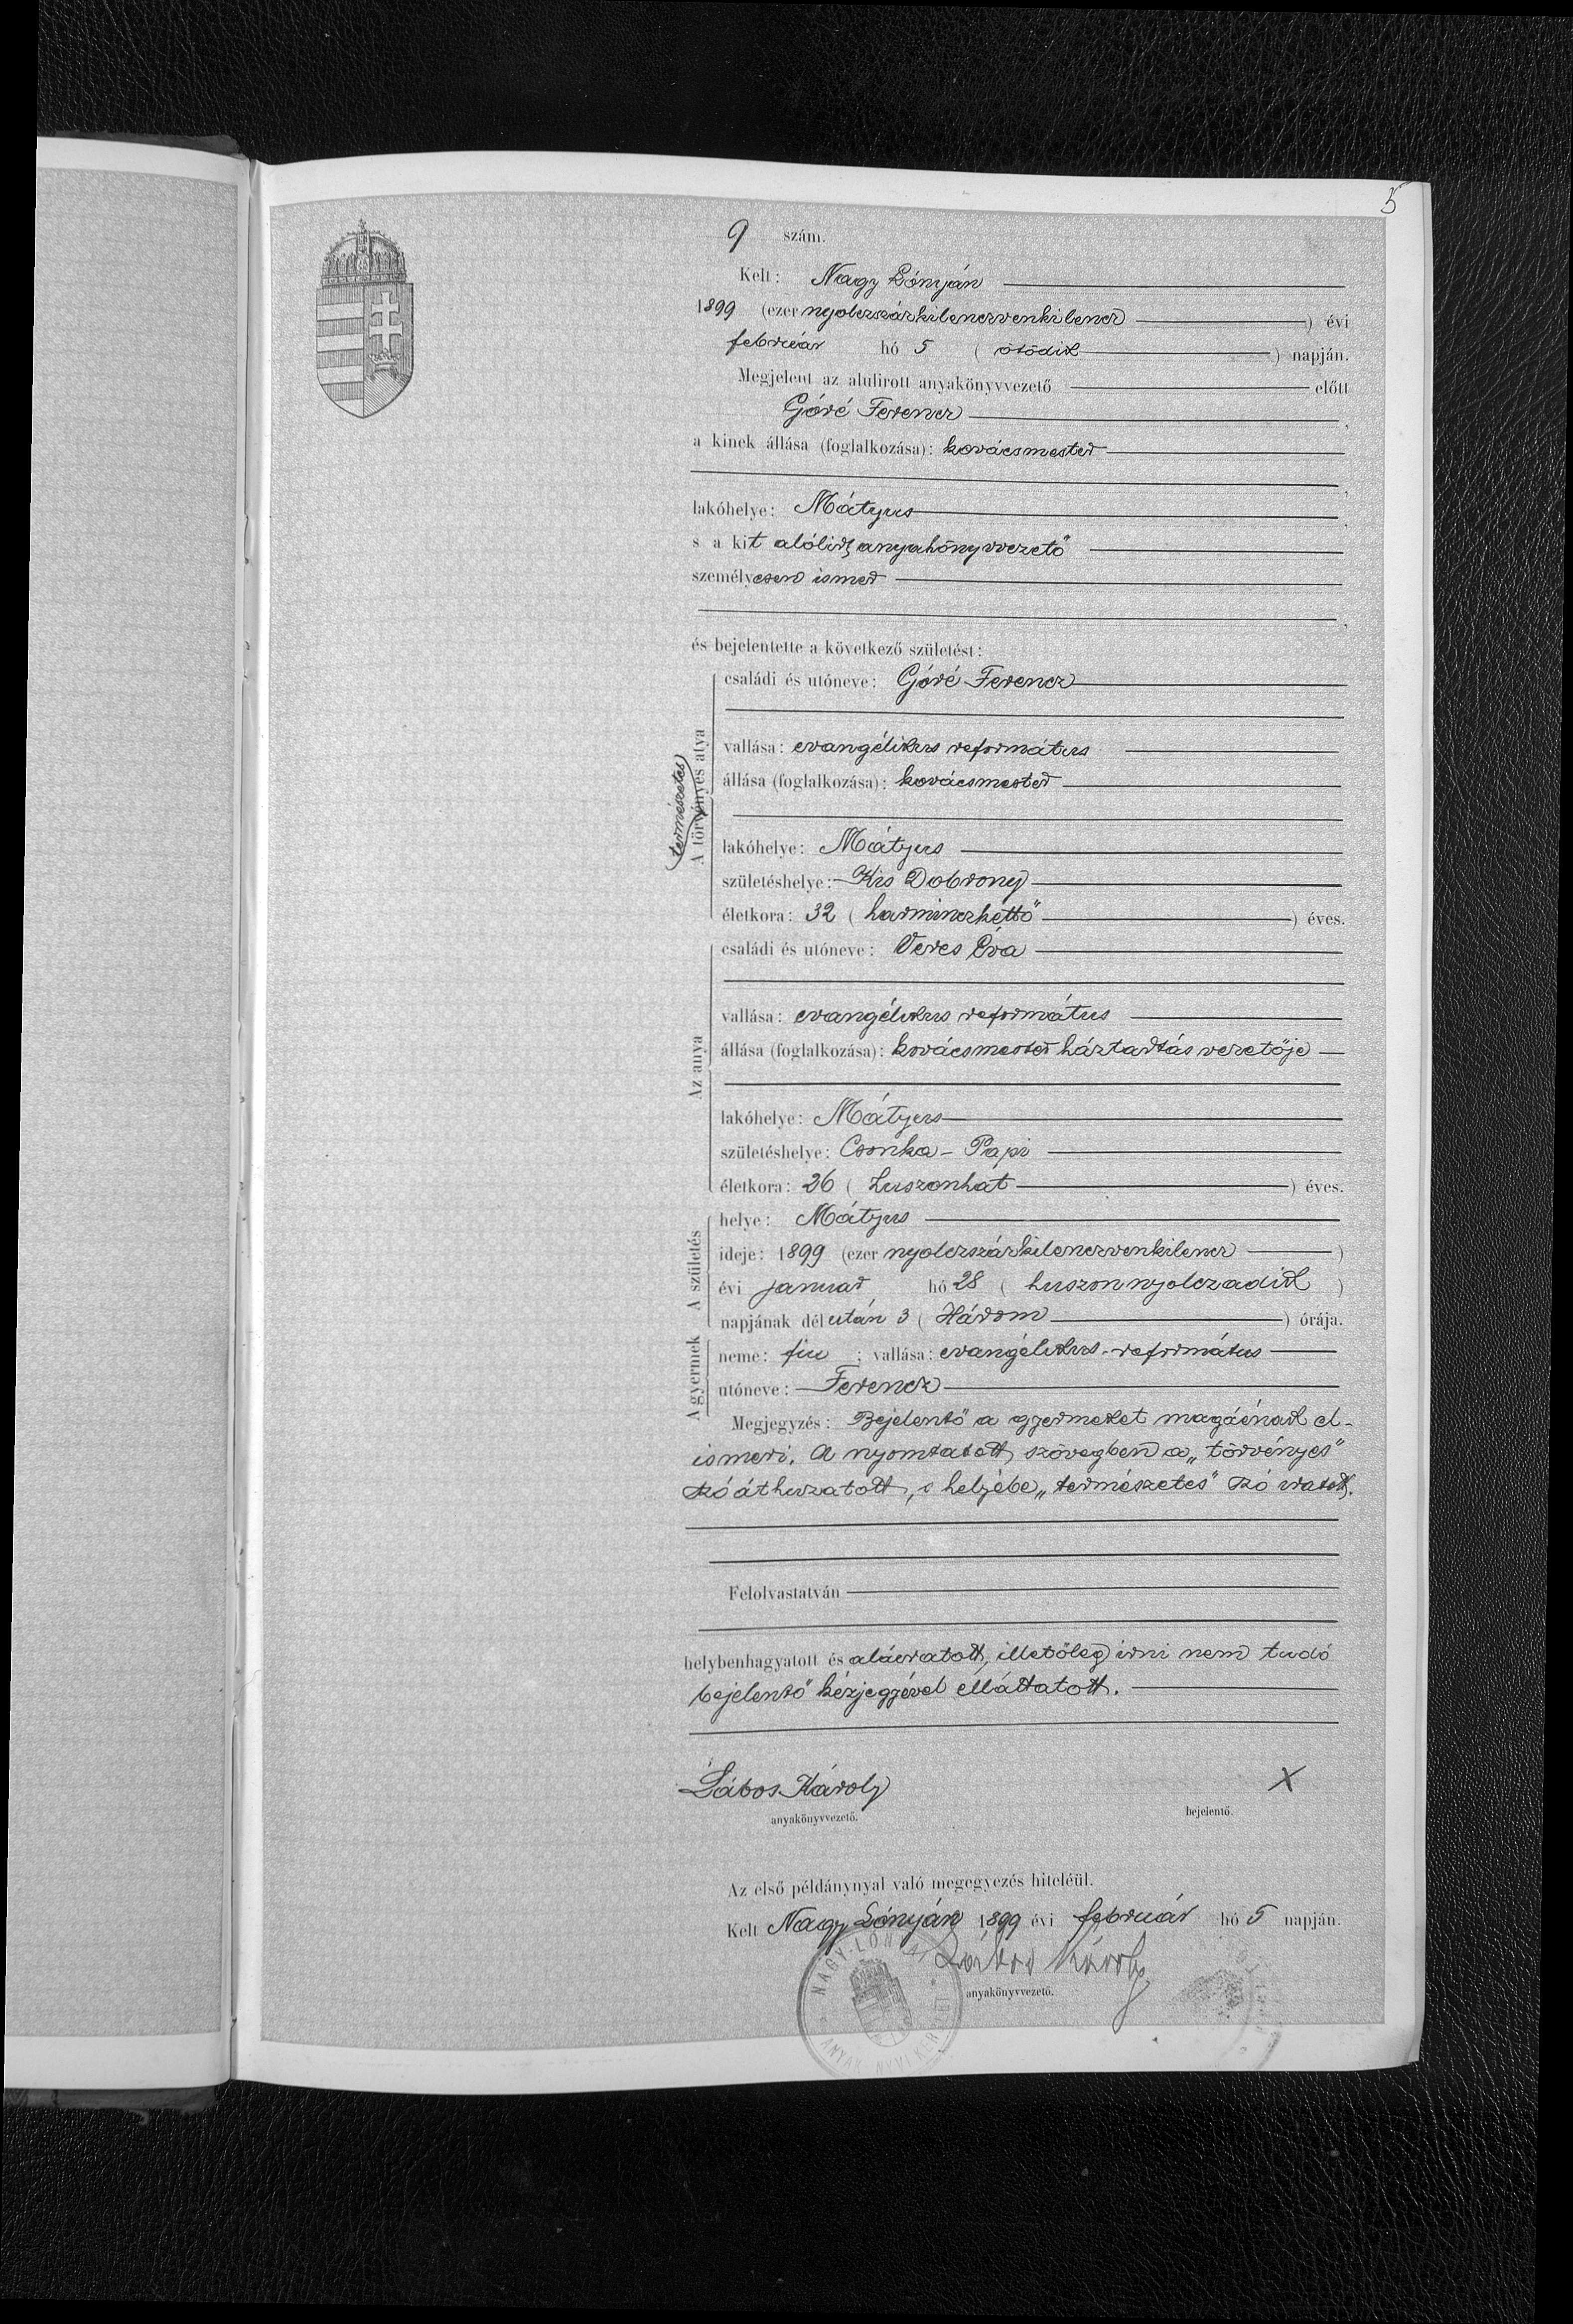 5
9 szám.
Kelt: Nagy Lónyán
1899 (ezer nyolczszázkilenczvenkilencz) évi
február hó 5 (ötödik) napján.
Megjelent az alulirott anyakönyvvezető előtt
Góré Ferencz,
a kinek állása (foglalkozása): kovácsmester
,
lakóhelye: Mátyus,
s a kit alólirt anyakönyvvezető
személyesen ismer
,
és bejelentette a következő születést:
A törvényes atya
(természetes)
családi és utóneve: Góré Ferencz
vallása: evangélikus református
állása (foglalkozása): kovácsmester
lakóhelye: Mátyus
születéshelye: Kis Dobrony
életkora: 32 (harminczkettő) éves.
Az anya
családi és utóneve: Veres Éva
vallása: evangélikus református
állása (foglalkozása): kovácsmester háztartás vezetője
lakóhelye: Mátyus
születéshelye: Csonka-Papi
életkora: 26 (huszonhat) éves.
A születés
helye: Mátyus
ideje: 1899 (ezer nyolczszázkilenczvenkilencz)
évi január hó 28 (huszonnyolczadik)
napjának délután 3 (Három) órája.
A gyermek
neme: fiu; vallása: evangélikus-református
utóneve: Ferencz
Megjegyzés: Bejelentő a gyermeket magáénak el-
ismeri. A nyomtatott szövegben a „törvényes"
szó áthuzatott, s helyébe „természetes" szó iratott.
Felolvastatván
helybenhagyatott és aláiratott, illetőleg irni nem tudó
bejelentő kézjegyével elláttatott.
Lábos Károly
X
anyakönyvvezető.
bejelentő.
Az első példánynyal való megegyezés hiteléül.
Kelt Nagy Lónyán 1899 évi február hó 5 napján.
Lábos Károly
anyakönyvvezető.